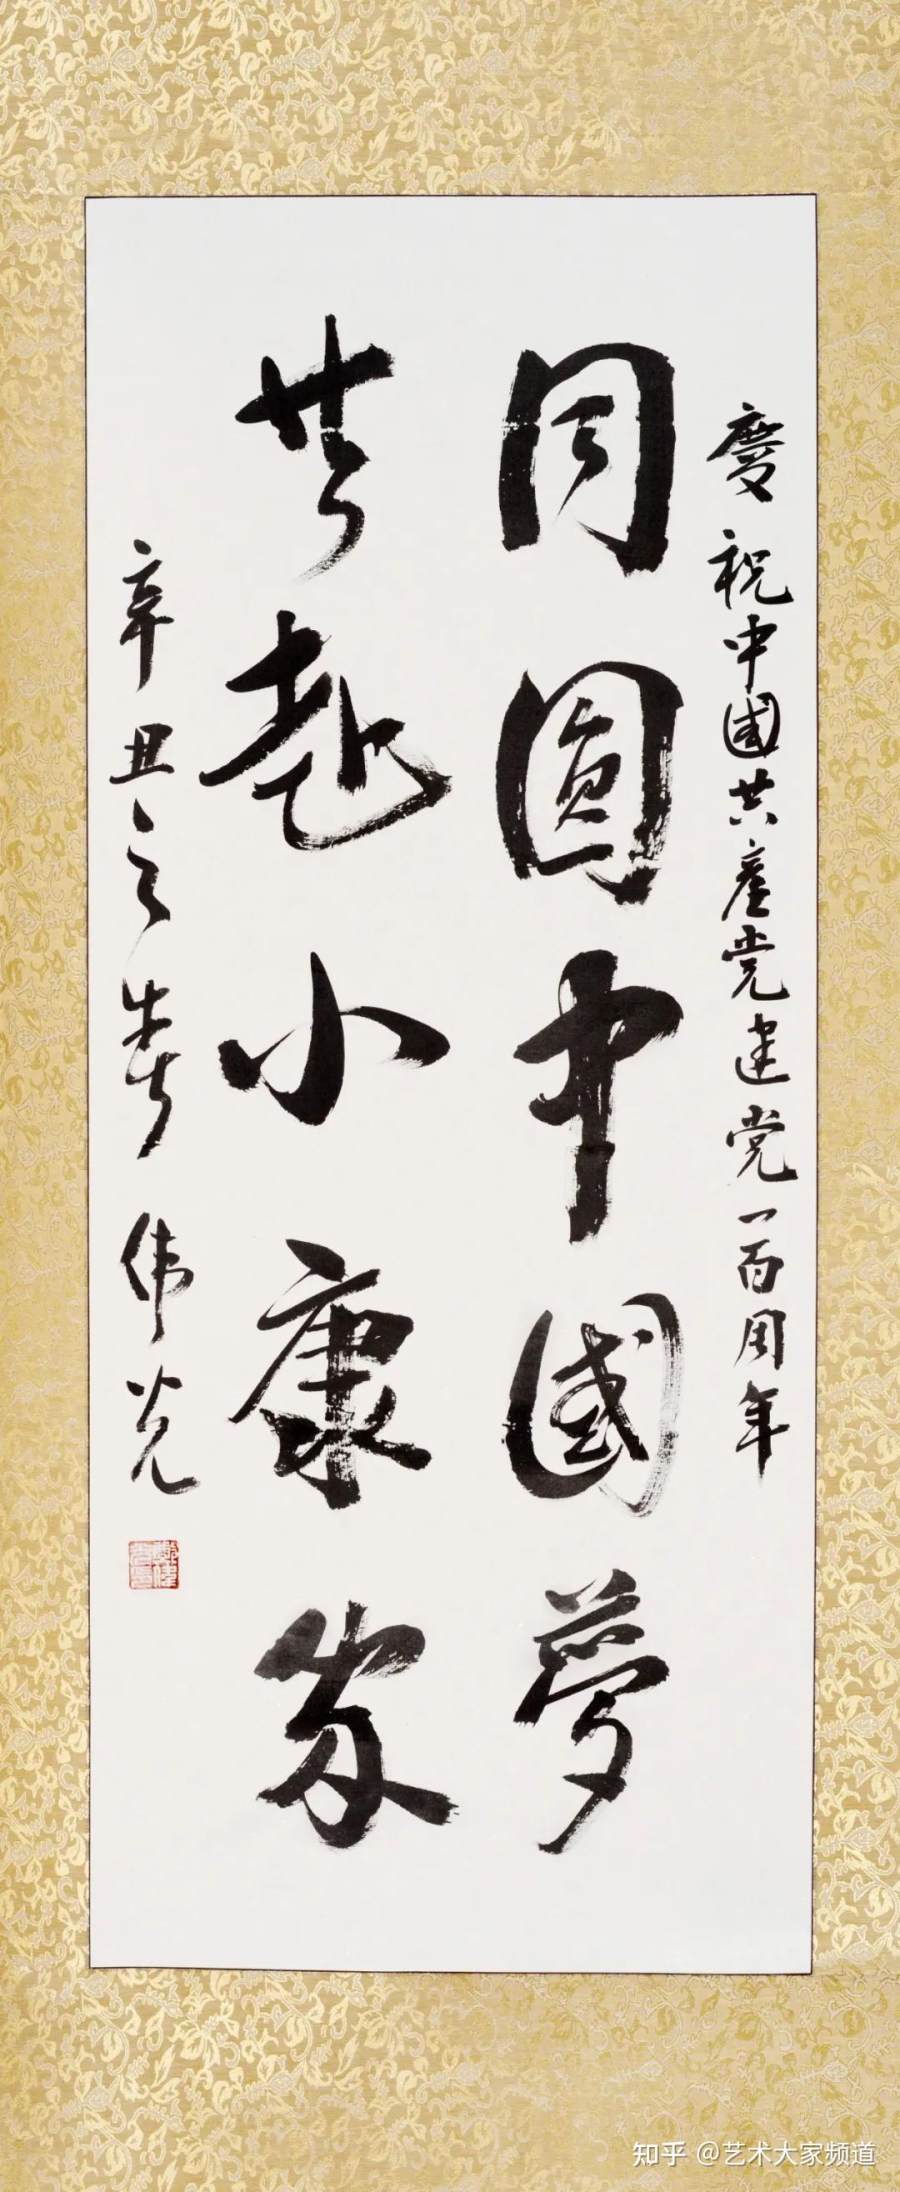 慶祝中國共產党建党一百周年
同圓中國夢
共小康家
辛丑之春 伟光
知乎 @艺术大家频道